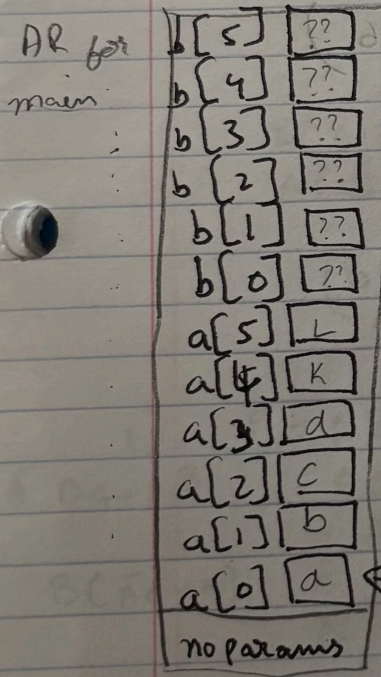 AR for
main
b[5] ??
b[4] ??
b[3] ??
b[2] ??
b[1] ??
b[0] ??
a[5] L
a[4] K
a[3] d
a[2] c
a[1] b
a[0] a
no params